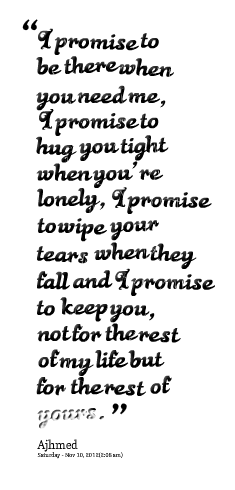 “I promise to
be there when
you need me,
I promise to
hug you tight
when you're
lonely, I promise
to wipe your
tears when they
fall and I promise
to keep you,
not for the rest
of my life but
for the rest of
yours.”
Ajhmed
Saturday - Nov 10, 2012(2:08 am)